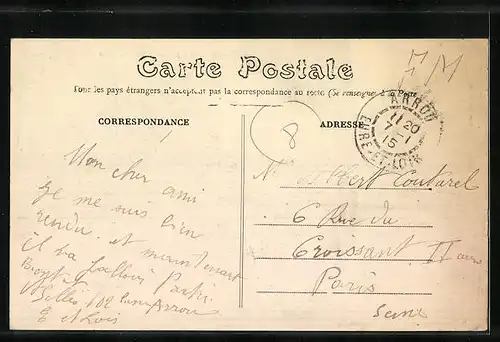 Carte Postale
Tous les pays étrangers n'acceptent pas la correspondance au recto (Se renseigner à la Poste)
CORRESPONDANCE
ADRESSE
ARROU
11 20
7 - 1
15
EURE ET LOIR
8
Mon cher ami
je me suis bien
rendu et maintenant
il va falloir partir
102 Arrou
E et Loir
M. Albert Coutarel
6 Rue du
Croissant II
Paris
Seine